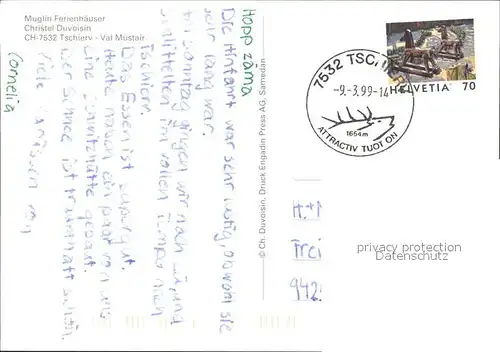 Muglin Ferienhäuser
Christel Duvoisin
CH-7532 Tschierv - Val Müstair
Hopp zäma
Die Hinfahrt war sehr lustig, obwohl sie
sehr lang war.
Am Sonntag gingen wir nach
schlittelten im vollen Tempo nach
Tschierv.
Das Essen ist supergut.
Heute haben ein paar von uns
eine Schneehütte gebaut.
Der Schnee ist traumhaft schön.
Viele Grüsse von
Cornelia
© Ch. Duvoisin, Druck Engadin Press AG, Samedan
7532 TSCHIERV
-9.-3.99-14
1664 m
ATTRACTIV TUOT ON
HELVETIA 70
H.+
Frei
942
privacy protection
DelCampe.com